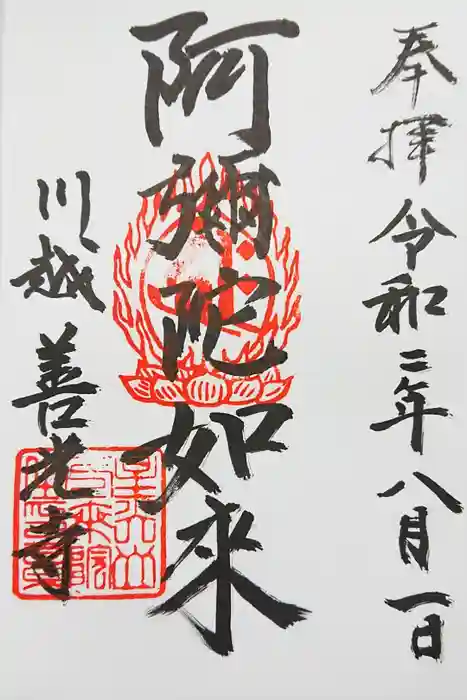 奉拝 令和三年八月一日
阿彌陀如来
川越 善光寺